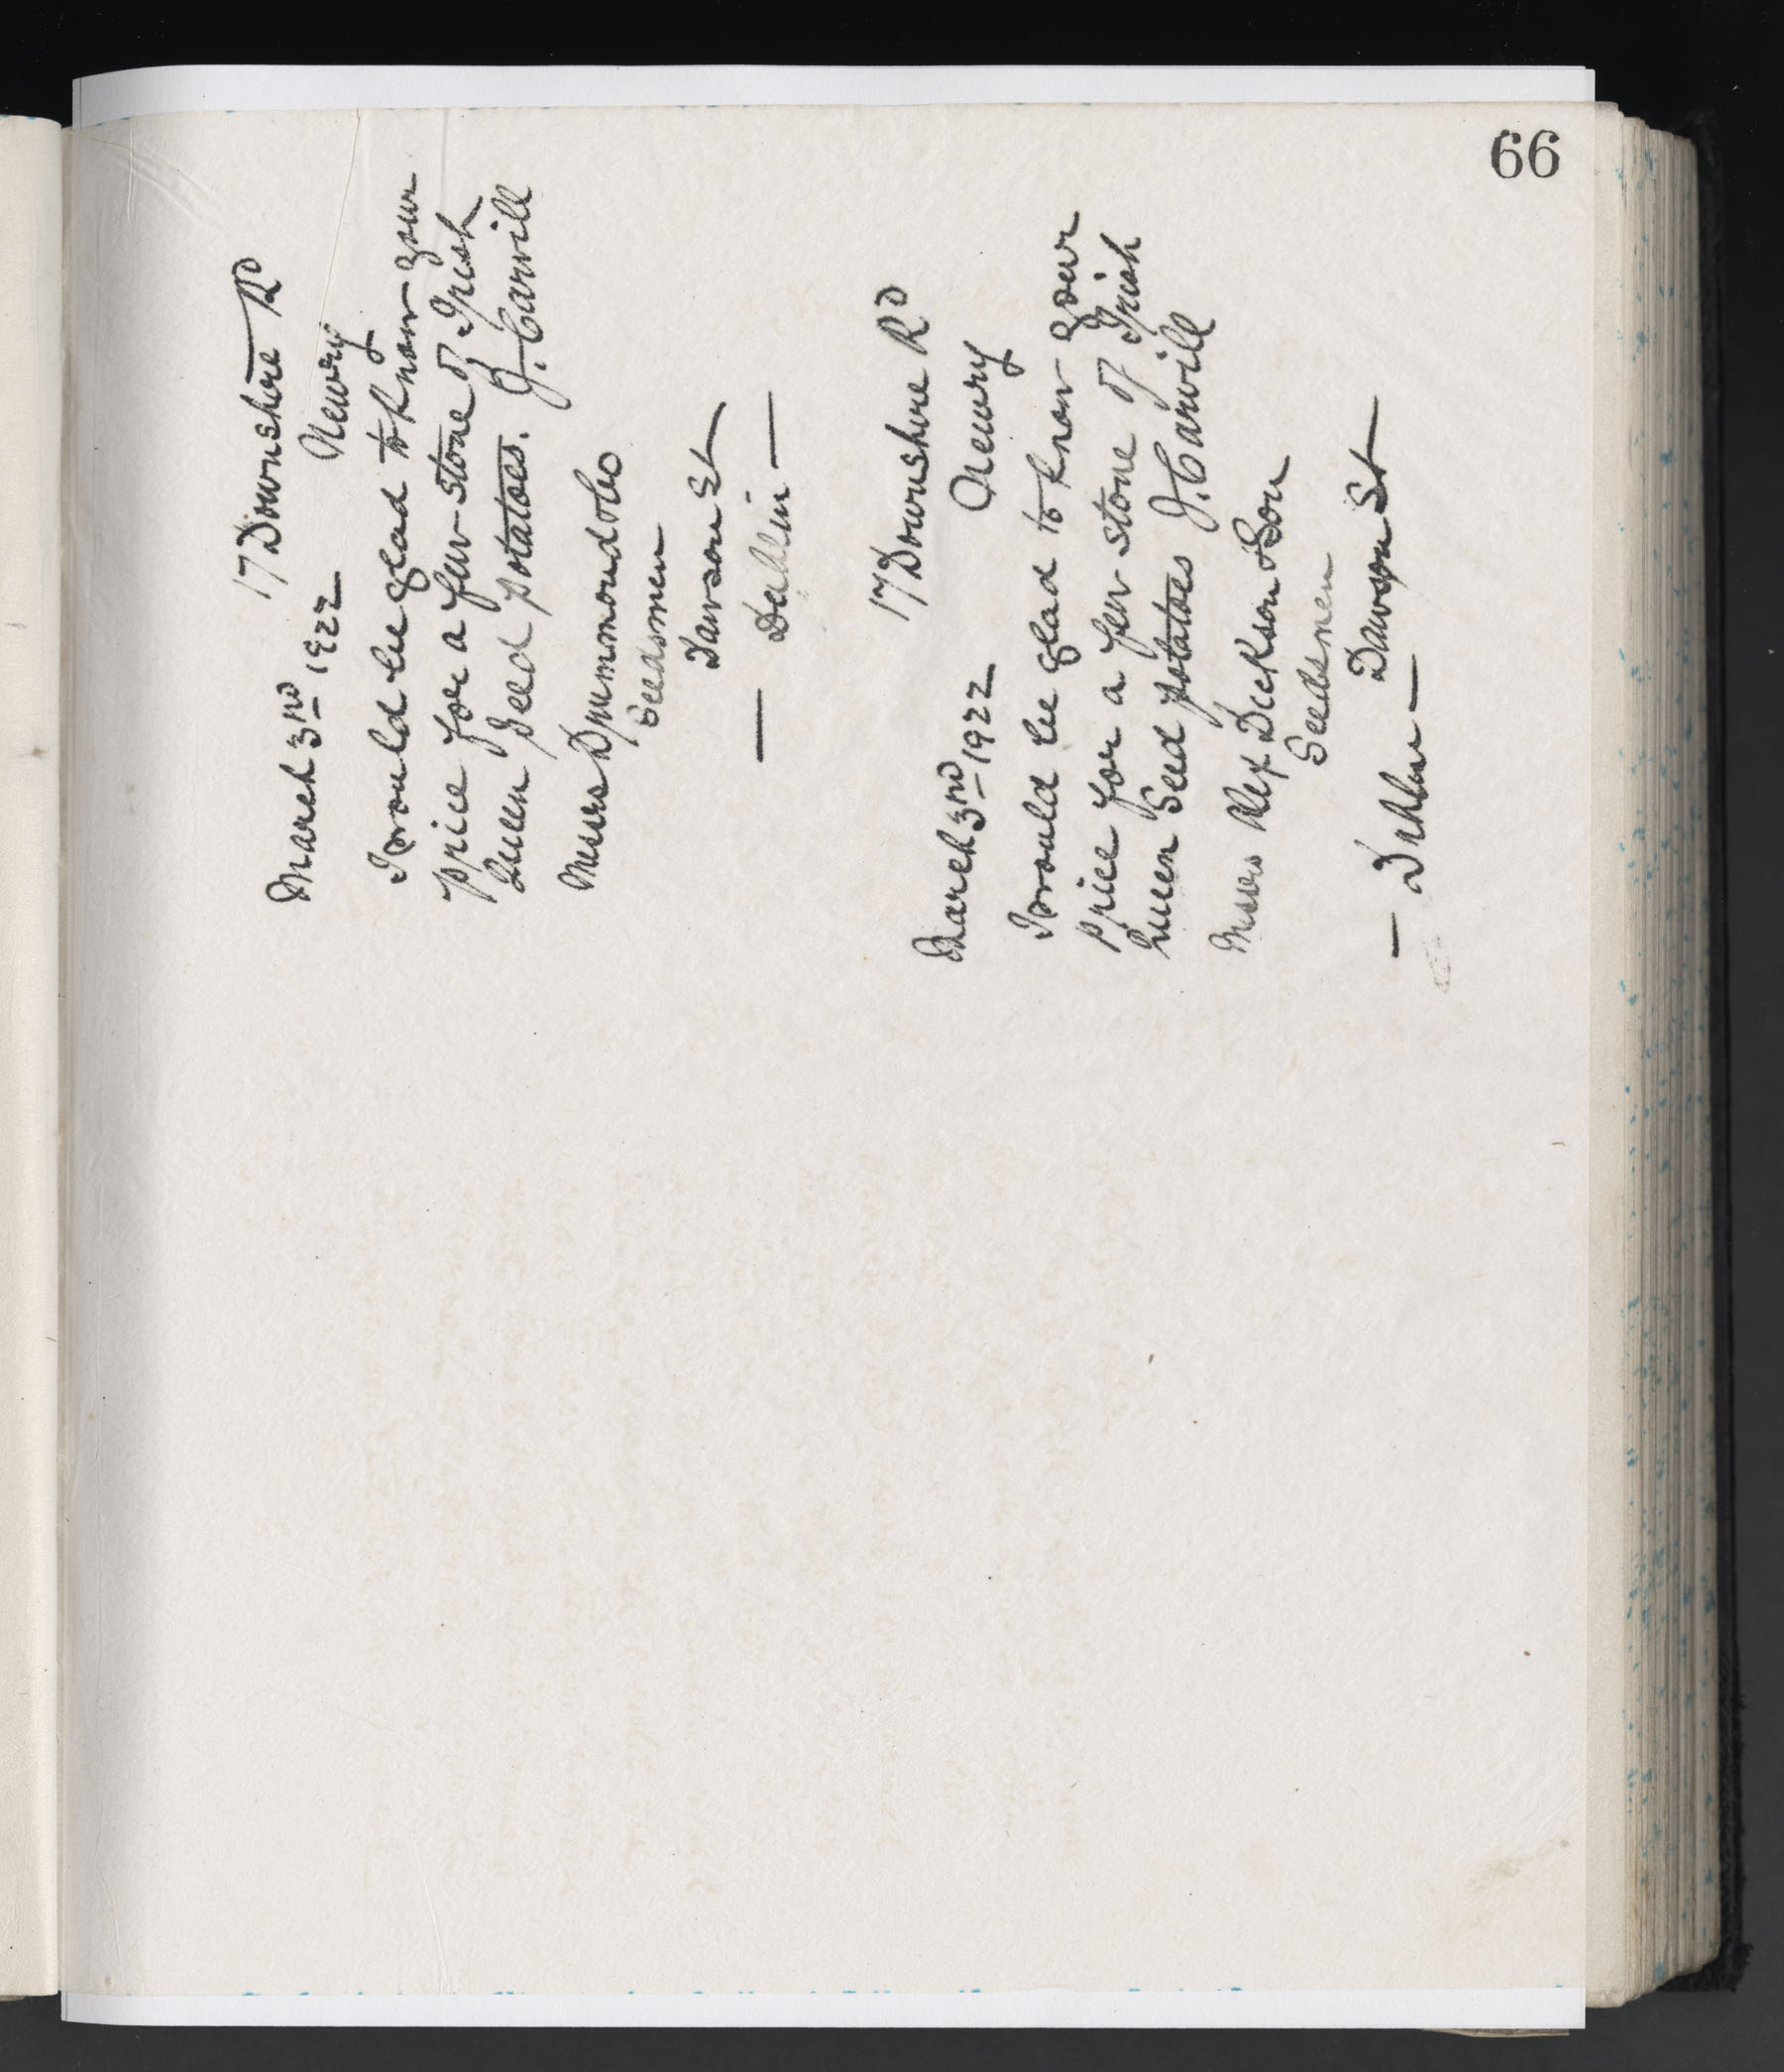 66
17 Downshire Rd
Newry
March 3rd 1922
I would be glad to know your
price for a few stone of Irish
Queen Seed potatoes. J. Carvill
Messrs Drummond & Co
Seedsmen
Dawson St
— Dublin —
17 Downshire Rd
Newry
March 3rd 1922
I would be glad to know your
price for a few stone of Irish
Queen Seed potatoes J. Carvill
Messrs Alex Dickson & Son
Seedsmen
Dawson St
— Dublin —